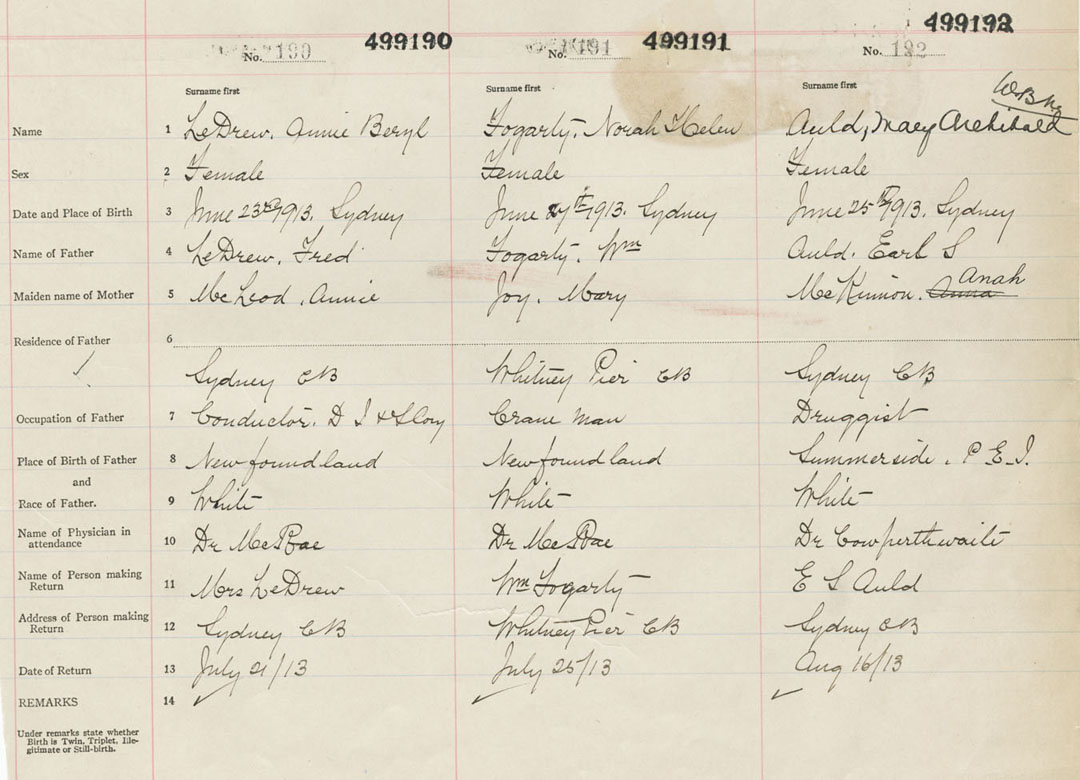 499190 499191 499192
No. 190 No. 191 No. 192
Surname first Surname first Surname first
Name 1 LeDrew, Annie Beryl Fogarty, Norah Helen Auld, Mary Archibald
Sex 2 Female Female Female
Date and Place of Birth 3 June 23rd 1913. Sydney June 27th 1913. Sydney June 25th 1913. Sydney
Name of Father 4 LeDrew, Fred Fogarty, Wm Auld, Earl S
Anah
Maiden name of Mother 5 McLeod, Annie Joy, Mary McKinnon, Anna
Residence of Father 6
Sydney CB Whitney Pier CB Sydney CB
Occupation of Father 7 Conductor, D I & S Coy Crane Man Druggist
Place of Birth of Father 8 Newfoundland Newfoundland Summerside, P.E.I.
and
Race of Father. 9 White White White
Name of Physician in
attendance 10 Dr McRae Dr McRae Dr Cowperthwaite
Name of Person making
Return 11 Mrs LeDrew Wm Fogarty E S Auld
Address of Person making
Return 12 Sydney CB Whitney Pier CB Sydney CB
Date of Return 13 July 21/13 July 25/13 Aug 16/13
REMARKS 14
Under remarks state whether
Birth is Twin, Triplet, Ille-
gitimate or Still-birth.